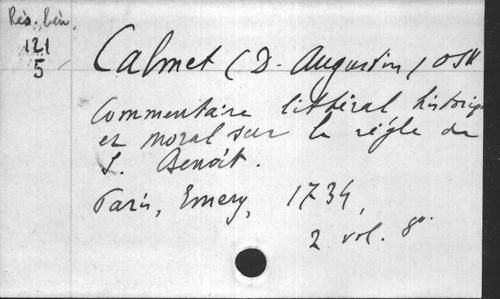 Rés. bén.
121
5
Calmet (D. Augustin) OSB
Commentaire littéral historiq
et moral sur la règle de
S. Benoît.
Paris, Emery, 1734,
2 vol. 8°.